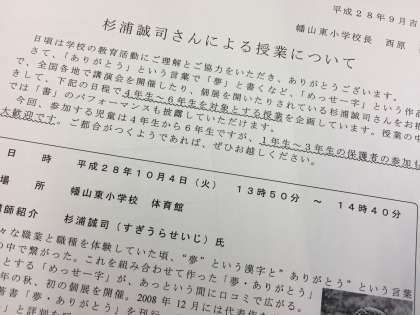 平成28年9月吉
幡山東小学校長　西原
杉浦誠司さんによる授業について
日頃は学校の教育活動にご理解とご協力をいただき、ありがとうございます。
さて、「ありがとう」という言葉で「夢」と書くなど、「めっせー字」という作品
で、全国各地で講演会を開催したり、個展を開いたりされている杉浦誠司さんをお招
きして、下記の日程で4年生～6年生を対象とする授業を企画しています。授業の中
では「書」のパフォーマンスも披露していただけます。
今回、参加する児童は4年生から6年生ですが、1年生～3年生の保護者の参加も
大歓迎です。ご都合がつくようであれば、ぜひお越しください。
日　時　平成28年10月4日（火）　13時50分　～　14時40分
場　所　幡山東小学校　体育館
講師紹介　杉浦誠司（すぎうらせいじ）氏
々な職業と職種を体験していた頃、“夢”という漢字と“ありがとう”という言葉
の中で繋がった。これを組み合わせて作った「夢・ありがとう」
とする「めっせー字」が、あっという間に口コミで広がる。
年の秋、初の個展を開催。2008年12月には代表作を
著書「夢・ありがとう」を刊行